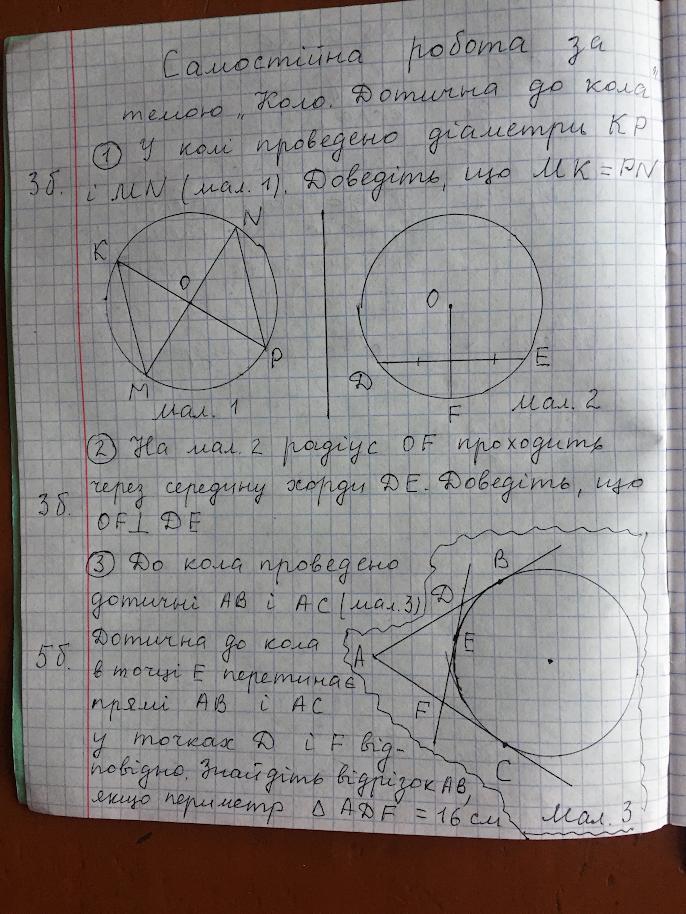 Самостійна робота за
темою „Коло. Дотична до кола"
① У колі проведено діаметри KP
3б. і MN (мал. 1). Доведіть, що MK = PN
K
N
O
M
P
мал. 1
O
D
E
F
мал. 2
② На мал. 2 радіус OF проходить
через середину хорди DE. Доведіть, що
3б. OF⊥ DE
③ До кола проведено
дотичні AB і AC (мал.3)
5б. Дотична до кола
в точці E перетинає
прямі AB і AC
у точках D і F від-
повідно. Знайдіть відрізок AB,
якщо периметр Δ ADF = 16 см
B
D
E
A
F
C
Мал. 3